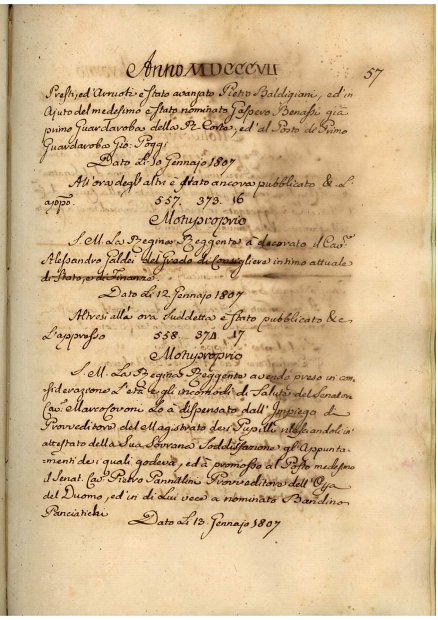 Anno MDCCCVII
57
Presti, ed Arruoti è stato avanzato Pietro Baldigiani, ed in
Ajuto del medesimo è stato nominato Gaspero Benassi già
primo Guardaroba della R. Corte, ed al Posto di Primo
Guardaroba Gio: Poggi
Dato Li 10 Gennajo 1807
All'ora degl'altri è stato ancora pubblicato & L'
appo.
557. 373. 16
Motuproprio
S. M. La Regina Reggente à decorato il Cav.
Alessandro Galilei del Grado di Consigliere intimo attuale
di Stato, e di Finanze
Dato Li 12 Gennajo 1807
Altresi alla ora suddetta è stato pubblicato & e
L'appresso 558. 374. 17
Motuproprio
S. M. La Regina Reggente avendo preso in con,
siderazione L'età e gli incomodi di Salute del Senatore
Cav. Marco Covoni Lo à dispensato dall'Impiego di
Provveditore del Magistrato dei Pupilli rilasciandoli in
attestato della Sua Sovrana Soddisfazione gl'Appunta,
menti de i quali godeva, ed à promosso al Posto medesimo
il Senat. Cav. Pietro Pannilini Provveditore dell'Opa
del Duomo, ed in di Lui vece a nominato Bandino
Panciatichi
Dato Li 13. Gennajo 1807